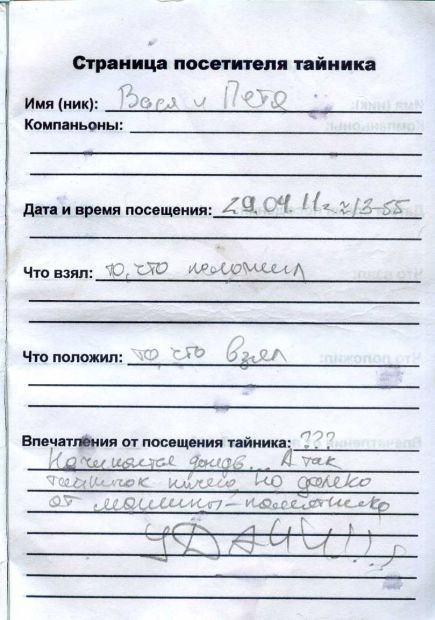 Страница посетителя тайника
Имя (ник): Вася и Петя
Компаньоны:
Дата и время посещения: 29.04.11г ≈13-55
Что взял: то, что положил
Что положил: то, что взял
Впечатления от посещения тайника: ???
Начинается дождь... А так
тайничок ничего, но далеко
от машины-
УДАЧИ!!!